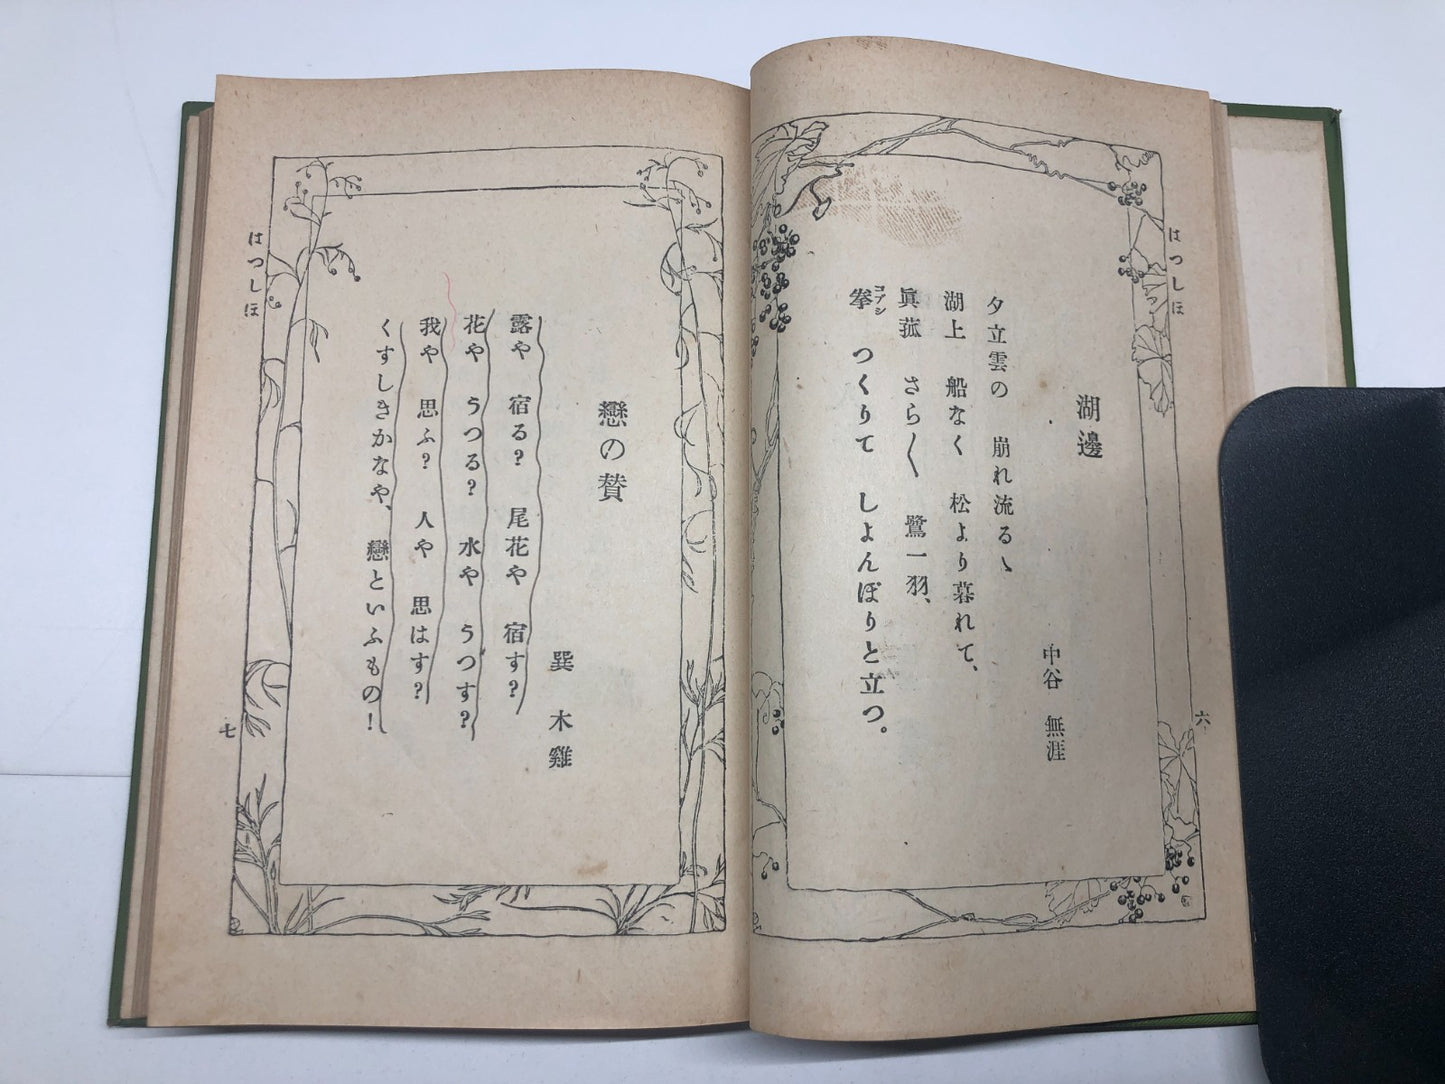 はつしほ
湖邊
中谷 無涯
夕立雲の 崩れ流るゝ
湖上 船なく 松より暮れて、
眞菰 さら〱 鷺一羽、
拳コブシ つくりて しよんぼりと立つ。
六
はつしほ
戀の賛
巽 木雞
露や 宿る? 尾花や 宿す?
花や うつる? 水や うつす?
我や 思ふ? 人や 思はす?
くすしきかなや、戀といふもの!
七